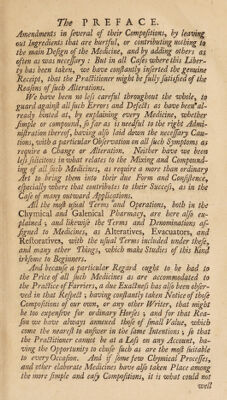 The PREFACE.
Amendments in several of their Compositions, by leaving
out Ingredients that are hurtful, or contributing nothing to
the main Design of the Medicine, and by adding others as
often as was necessary: But in all Cases where this Liber-
ty has been taken, we have constantly inserted the genuine
Receipt, that the Practitioner might be fully satisfied of the
Reasons of such Alterations.
We have been no less careful throughout the whole, to
guard against all such Errors and Defects as have been al-
ready hinted at, by explaining every Medicine, whether
simple or compound, so far as is needful to the right Admi-
nistration thereof, having also laid down the necessary Cau-
tions, with a particular Observation on all such Symptoms as
require a Change or Alteration. Neither have we been
less solicitous in what relates to the Mixing and Compound-
ing of all such Medicines, as require a more than ordinary
Art to bring them into their due Form and Consistence,
especially where that contributes to their Success, as in the
Case of many outward Applications.
All the most usual Terms and Operations, both in the
Chymical and Galenical Pharmacy, are here also ex-
plained; and likewise the Terms and Denominations as-
signed to Medicines, as Alteratives, Evacuators, and
Restoratives, with the usual Terms included under these,
and many other Things, which make Studies of this Kind
irksome to Beginners.
And because a particular Regard ought to be had to
the Price of all such Medicines as are accommodated to
the Practice of Farriers, a due Exactness has also been obser-
ved in that Respect; having constantly taken Notice of those
Compositions of our own, or any other Writer, that might
be too expensive for ordinary Horses; and for that Rea-
son we have always annexed those of small Value, which
came the nearest to answer in the same Intentions; so that
the Practitioner cannot be at a Loss on any Account, ha-
ving the Opportunity to chuse such as are the most suitable
to every Occasion. And if some few Chymical Processes,
and other elaborate Medicines have also taken Place among
the more simple and easy Compositions, it is what could not
well